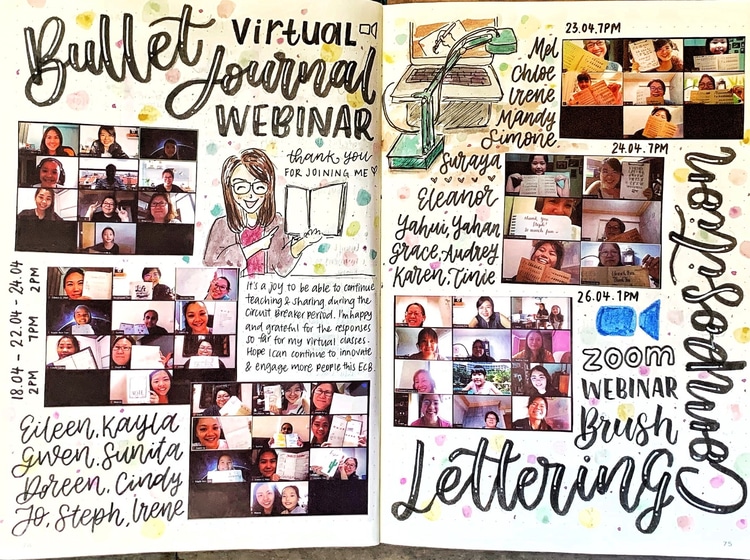 Bullet
virtual
Journal
WEBINAR
thank you
FOR JOINING ME
18.04 - 22.04 - 24.04
2PM 7PM 2PM
It's a joy to be able to continue
teaching & sharing during the
Circuit Breaker period. I'm happy
and grateful for the responses
so far for my virtual classes.
Hope I can continue to innovate
& engage more people this ECB.
Eileen, Kayla
Gwen, Sunita
Doreen, Cindy
Jo, Steph, Irene
23.04. 7PM
Mel
Chloe
Irene
Mandy
Simone
Suraya
24.04. 7PM
Eleanor
Yahui, Yahan
Grace, Audrey
Karen, Tinie
26.04. 1PM
zoom
WEBINAR
Brush
Lettering
Composition
75